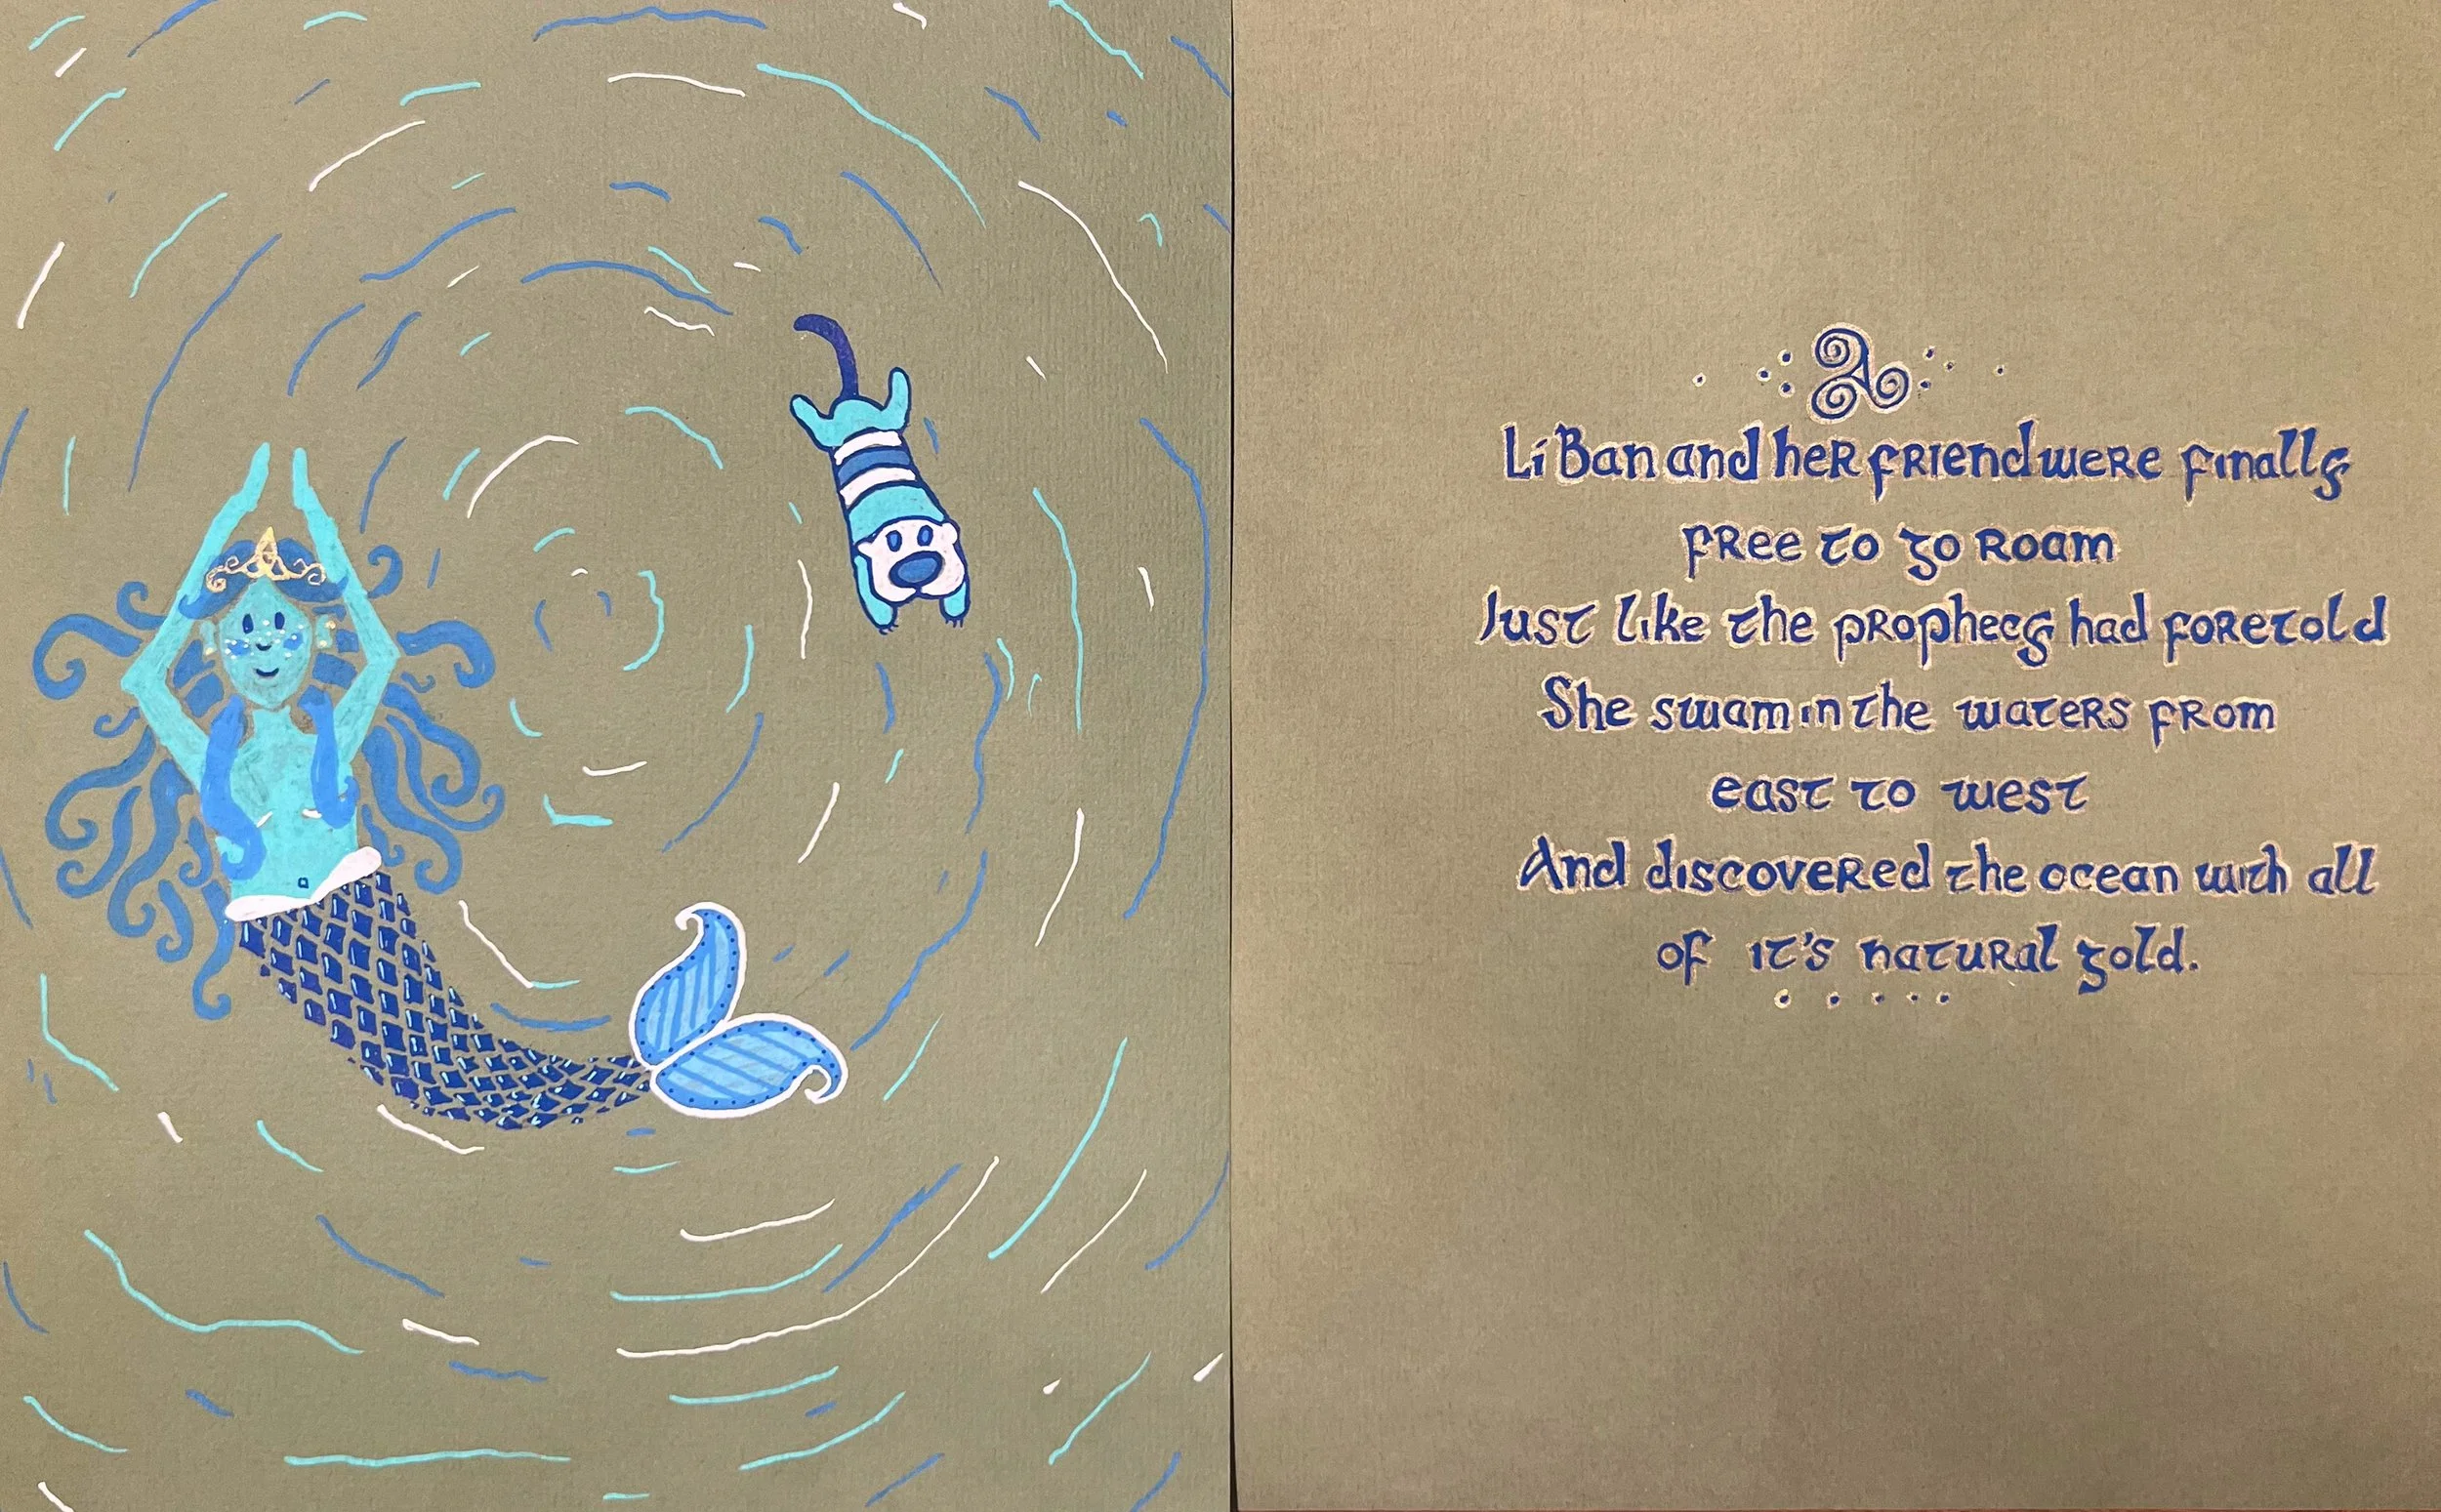 Lí Ban and her friend were finally
free to go roam
Just like the prophecy had foretold
She swam in the waters from
east to west
And discovered the ocean with all
of it's natural gold.